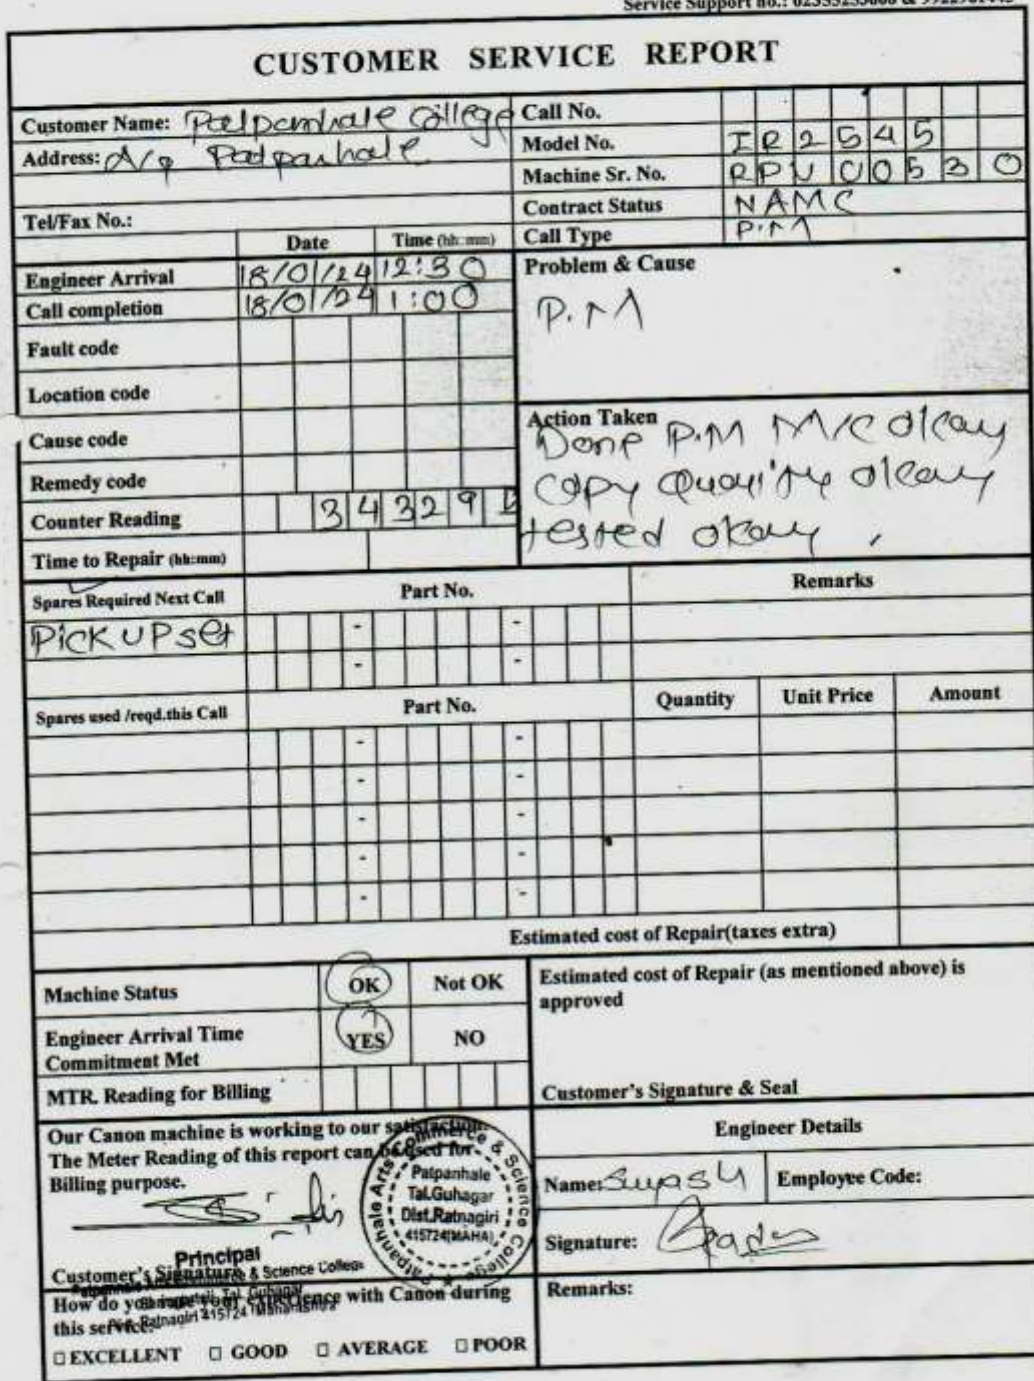 Service Support no.:
CUSTOMER SERVICE REPORT
Customer Name: Patpanhale College
Address: A/p Patpanhale
Tel/Fax No.:
Call No.
Model No. IR2545
Machine Sr. No. RPV00530
Contract Status NAMC
Call Type P.M
Date Time (hh:mm)
Engineer Arrival 18/01/24 12:30
Call completion 18/01/24 1:00
Fault code
Location code
Cause code
Remedy code
Counter Reading 34329
Time to Repair (hh:mm)
Problem & Cause
P.M
Action Taken
Done P.M M/C okay
copy Quality okay
tested okay
Spares Required Next Call Part No. Remarks
Pick up set - -
- -
Spares used /reqd.this Call Part No. Quantity Unit Price Amount
- -
- -
- -
- -
- -
Estimated cost of Repair(taxes extra)
Machine Status OK Not OK
Engineer Arrival Time YES NO
Commitment Met
MTR. Reading for Billing
Estimated cost of Repair (as mentioned above) is
approved
Customer's Signature & Seal
Our Canon machine is working to our satisfaction.
The Meter Reading of this report can be used for
Billing purpose.
Patpanhale Arts Commerce & Science College
Patpanhale
Tal.Guhagar
Dist.Ratnagiri
415724(MAHA)
Principal
Customer's Signature
Patpanhale Arts Commerce & Science College
Tal. Guhagar
Dist. Ratnagiri 415724 Maharashtra
How do you rate your experience with Canon during
this service:
□ EXCELLENT □ GOOD □ AVERAGE □ POOR
Engineer Details
Name: Employee Code:
Signature:
Remarks: